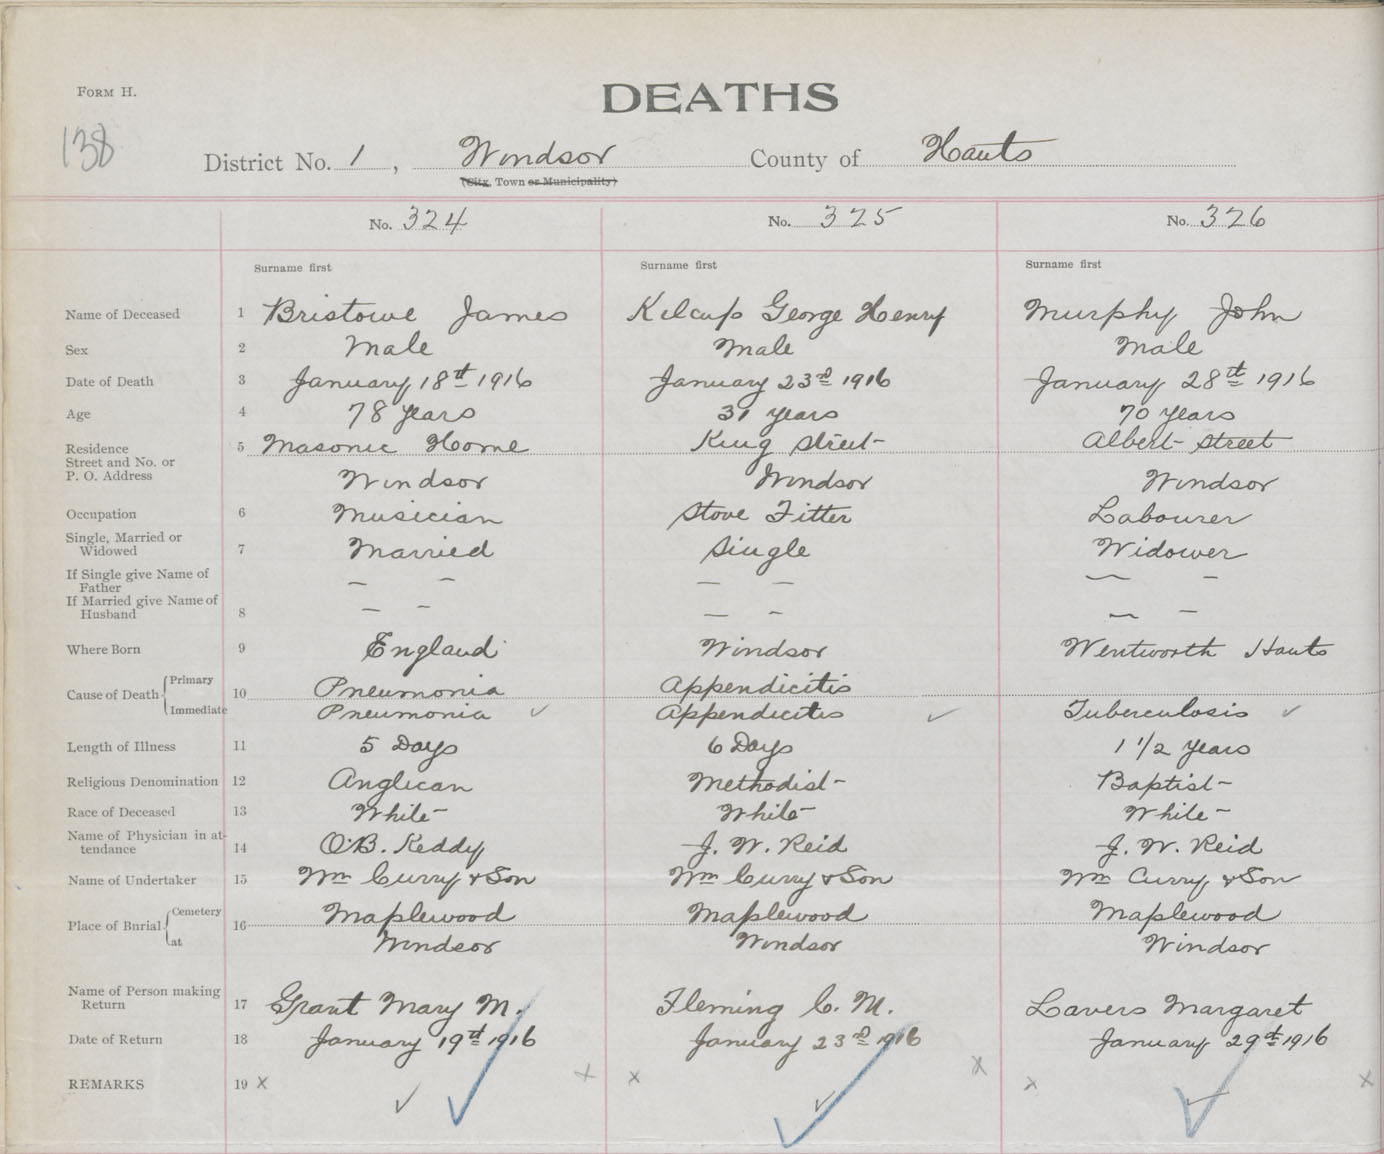 FORM H.
DEATHS
138
District No. 1, Windsor County of Hants
(City, Town or Municipality)
No. 324 No. 325 No. 326
Surname first Surname first Surname first
Name of Deceased 1 Bristowe James Kelcup George Henry Murphy John
Sex 2 Male Male Male
Date of Death 3 January 18th 1916 January 23rd 1916 January 28th 1916
Age 4 78 years 31 years 70 years
Residence 5 Masonic Home King Street Albert Street
Street and No. or
P. O. Address Windsor Windsor Windsor
Occupation 6 Musician Stove Fitter Labourer
Single, Married or
Widowed 7 Married Single Widower
If Single give Name of
Father — — — — — —
If Married give Name of
Husband 8 — — — — — —
Where Born 9 England Windsor Wentworth Hants
Cause of Death Primary 10 Pneumonia Appendicitis
Immediate Pneumonia ✓ Appendicitis ✓ Tuberculosis ✓
Length of Illness 11 5 Days 6 Days 1 1/2 years
Religious Denomination 12 Anglican Methodist Baptist
Race of Deceased 13 White White White
Name of Physician in at-
tendance 14 O.B. Keddy J. W. Reid J. W. Reid
Name of Undertaker 15 Wm Curry & Son Wm Curry & Son Wm Curry & Son
Place of Burial Cemetery 16 Maplewood Maplewood Maplewood
at Windsor Windsor Windsor
Name of Person making
Return 17 Grant Mary M. Fleming C. M. Lavers Margaret
Date of Return 18 January 19th 1916 January 23rd 1916 January 29th 1916
REMARKS 19 x x x x x x
✓ ✓ ✓ ✓ ✓